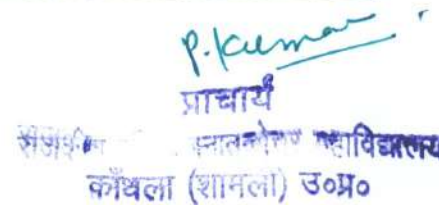 P. Kumar
प्राचार्य
स्नातकोत्तर महाविद्यालय
काँधला (शामली) उ०प्र०